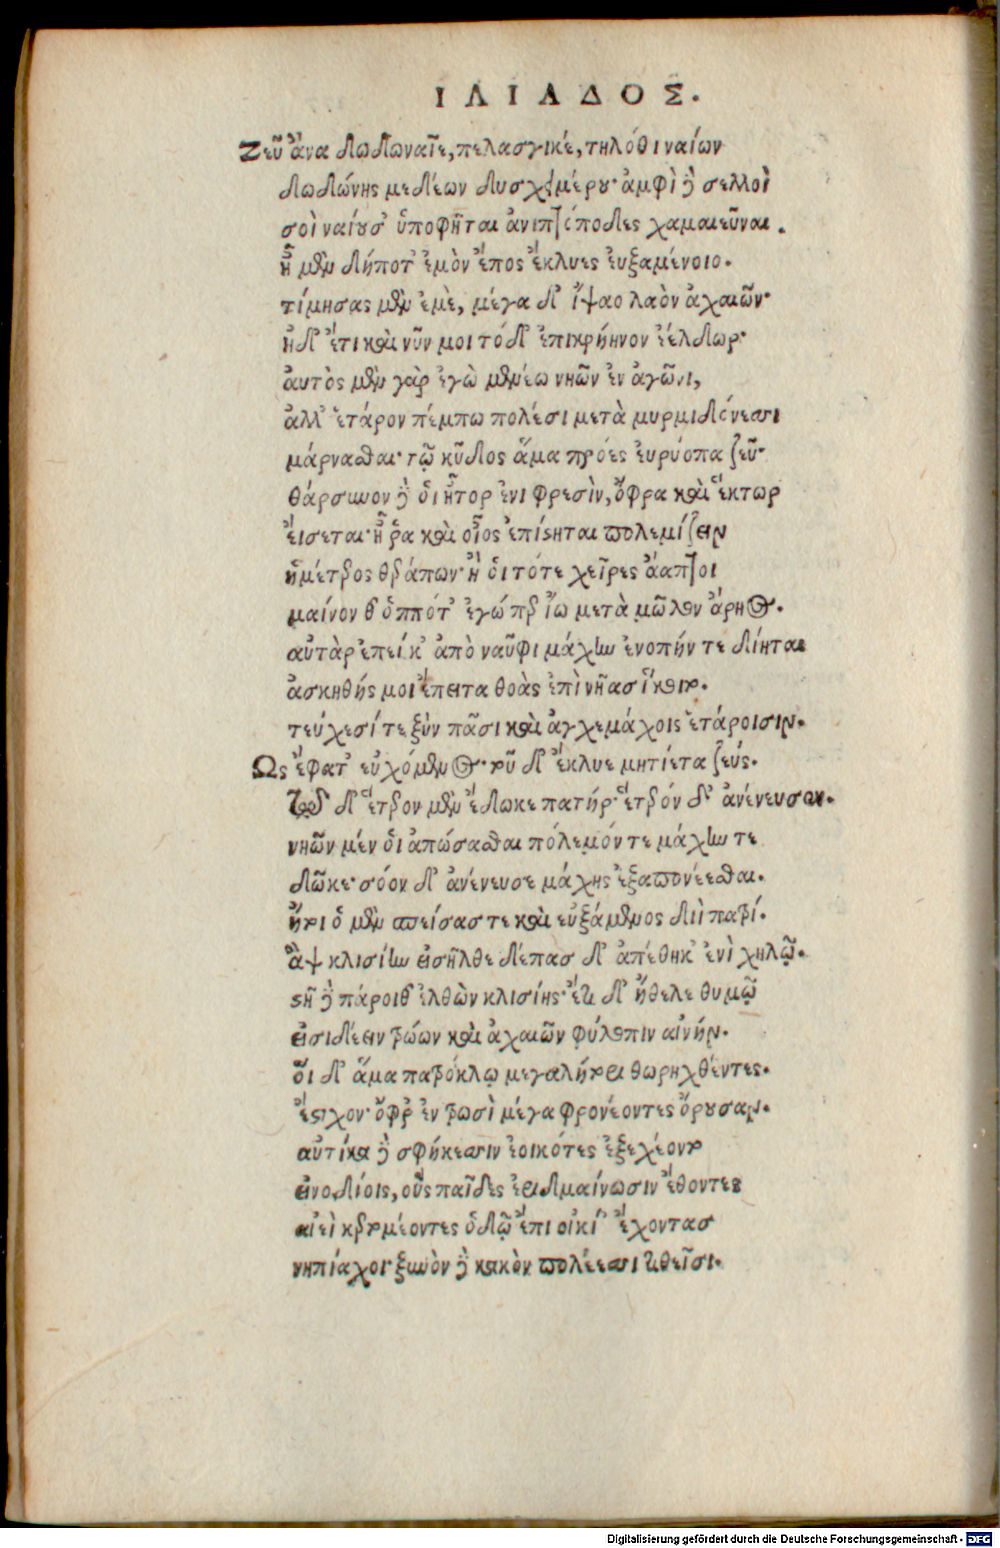 ΙΛΙΑΔΟΣ.
Ζεῦ ἄνα Δωδωναῖε, πελασγικέ, τηλόθι ναίων
Δωδώνης μεδέων δυσχειμέρου· ἀμφὶ δὲ σελλοὶ
σοὶ ναίουσ' ὑποφῆται ἀνιπτόποδες χαμαιεῦναι.
ἢ μὲν δήποτ' ἐμὸν ἔπος ἔκλυες εὐξαμένοιο.
τίμησας μὲν ἐμὲ, μέγα δ' ἴψαο λαὸν ἀχαιῶν·
ἠδ' ἔτι καὶ νῦν μοι τόδ' ἐπικρήηνον ἐέλδωρ·
ἀυτὸς μὲν γὰρ ἐγὼ μενέω νηῶν ἐν ἀγῶνι,
ἀλλ' ἕταρον πέμπω πολέσι μετὰ μυρμιδόνεσσι
μάρνασθαι· τῷ κῦδος ἅμα πρόες ἐυρύοπα ζεῦ·
θάρσυνον δέ ὁι ἦτορ ἐνι φρεσὶν, ὄφρα καὶ ἕκτωρ
ἔισεται· ἦ ῥα καὶ οἶος ἐπίστηται πολεμίζειν
ἡμέτερος θεράπων· ἦ ὁι τότε χεῖρες ἄαπτοι
μαίνονθ' ὁππότ' ἐγώ περ ἴω μετὰ μῶλον ἄρηος.
αὐτὰρ ἐπεί κ' ἀπὸ ναῦφι μάχην ἐνοπήν τε δίηται
ἀσκηθής μοι ἔπειτα θοὰς ἐπὶ νῆας ἵκοιτο.
τεύχεσί τε ξὺν πᾶσι καὶ ἀγχεμάχοις ἑτάροισιν.
Ως ἔφατ' εὐχόμενος· τοῦ δ' ἔκλυε μητίετα ζεύς.
Τῷ δ' ἕτερον μὲν ἔδωκε πατήρ· ἕτερόν δ' ἀνένευσεν.
νηῶν μέν ὁι ἀπώσασθαι πόλεμόν τε μάχην τε
δῶκε· σόον δ' ἀνένευσε μάχης ἐξαπονέεσθαι.
ἤτοι ὁ μὲν σπείσας τε καὶ εὐξάμενος διὶ πατρί.
ἂψ κλισίην εἰσῆλθε δέπας δ' ἀπέθηκ' ἐνὶ χηλῷ.
στῆ δὲ πάροιθ' ἐλθὼν κλισίης· ἔτι δ' ἤθελε θυμῷ
εἰσιδέειν τρώων καὶ ἀχαιῶν φύλοπιν αἰνήν.
ὅι δ' ἅμα πατρόκλῳ μεγαλήτορι θωρηχθέντες.
ἔστιχον· ὄφρ' ἐν τρωσὶ μέγα φρονέοντες ὄρουσαν.
αὐτίκα δὲ σφήκεσσιν ἐοικότες ἐξεχέοντο
εἰνοδίοις, οὓς παῖδες ἐριδμαίνωσιν ἔθοντες
αἰεὶ κερτομέοντες ὁδῷ ἔπι οἰκί' ἔχοντας
νηπίαχοι· ξυνὸν δὲ κακὸν πολέεσσι τιθεῖσι.
Digitalisierung gefördert durch die Deutsche Forschungsgemeinschaft - DFG